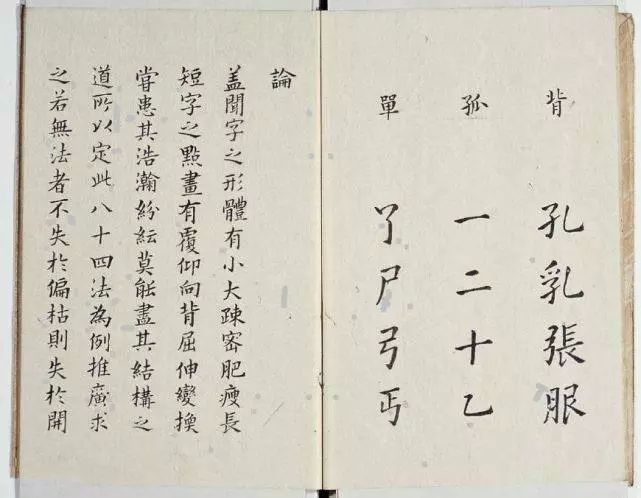 背 孔乳張服
孤 一二十乙
單 尸弓丐
論
盖聞字之形體有小大疎密肥瘦長
短字之點畫有覆仰向背屈伸變換
嘗患其浩瀚紛紜莫能盡其結構之
道所以定此八十四法為例推廣求
之若無法者不失於偏枯則失於開